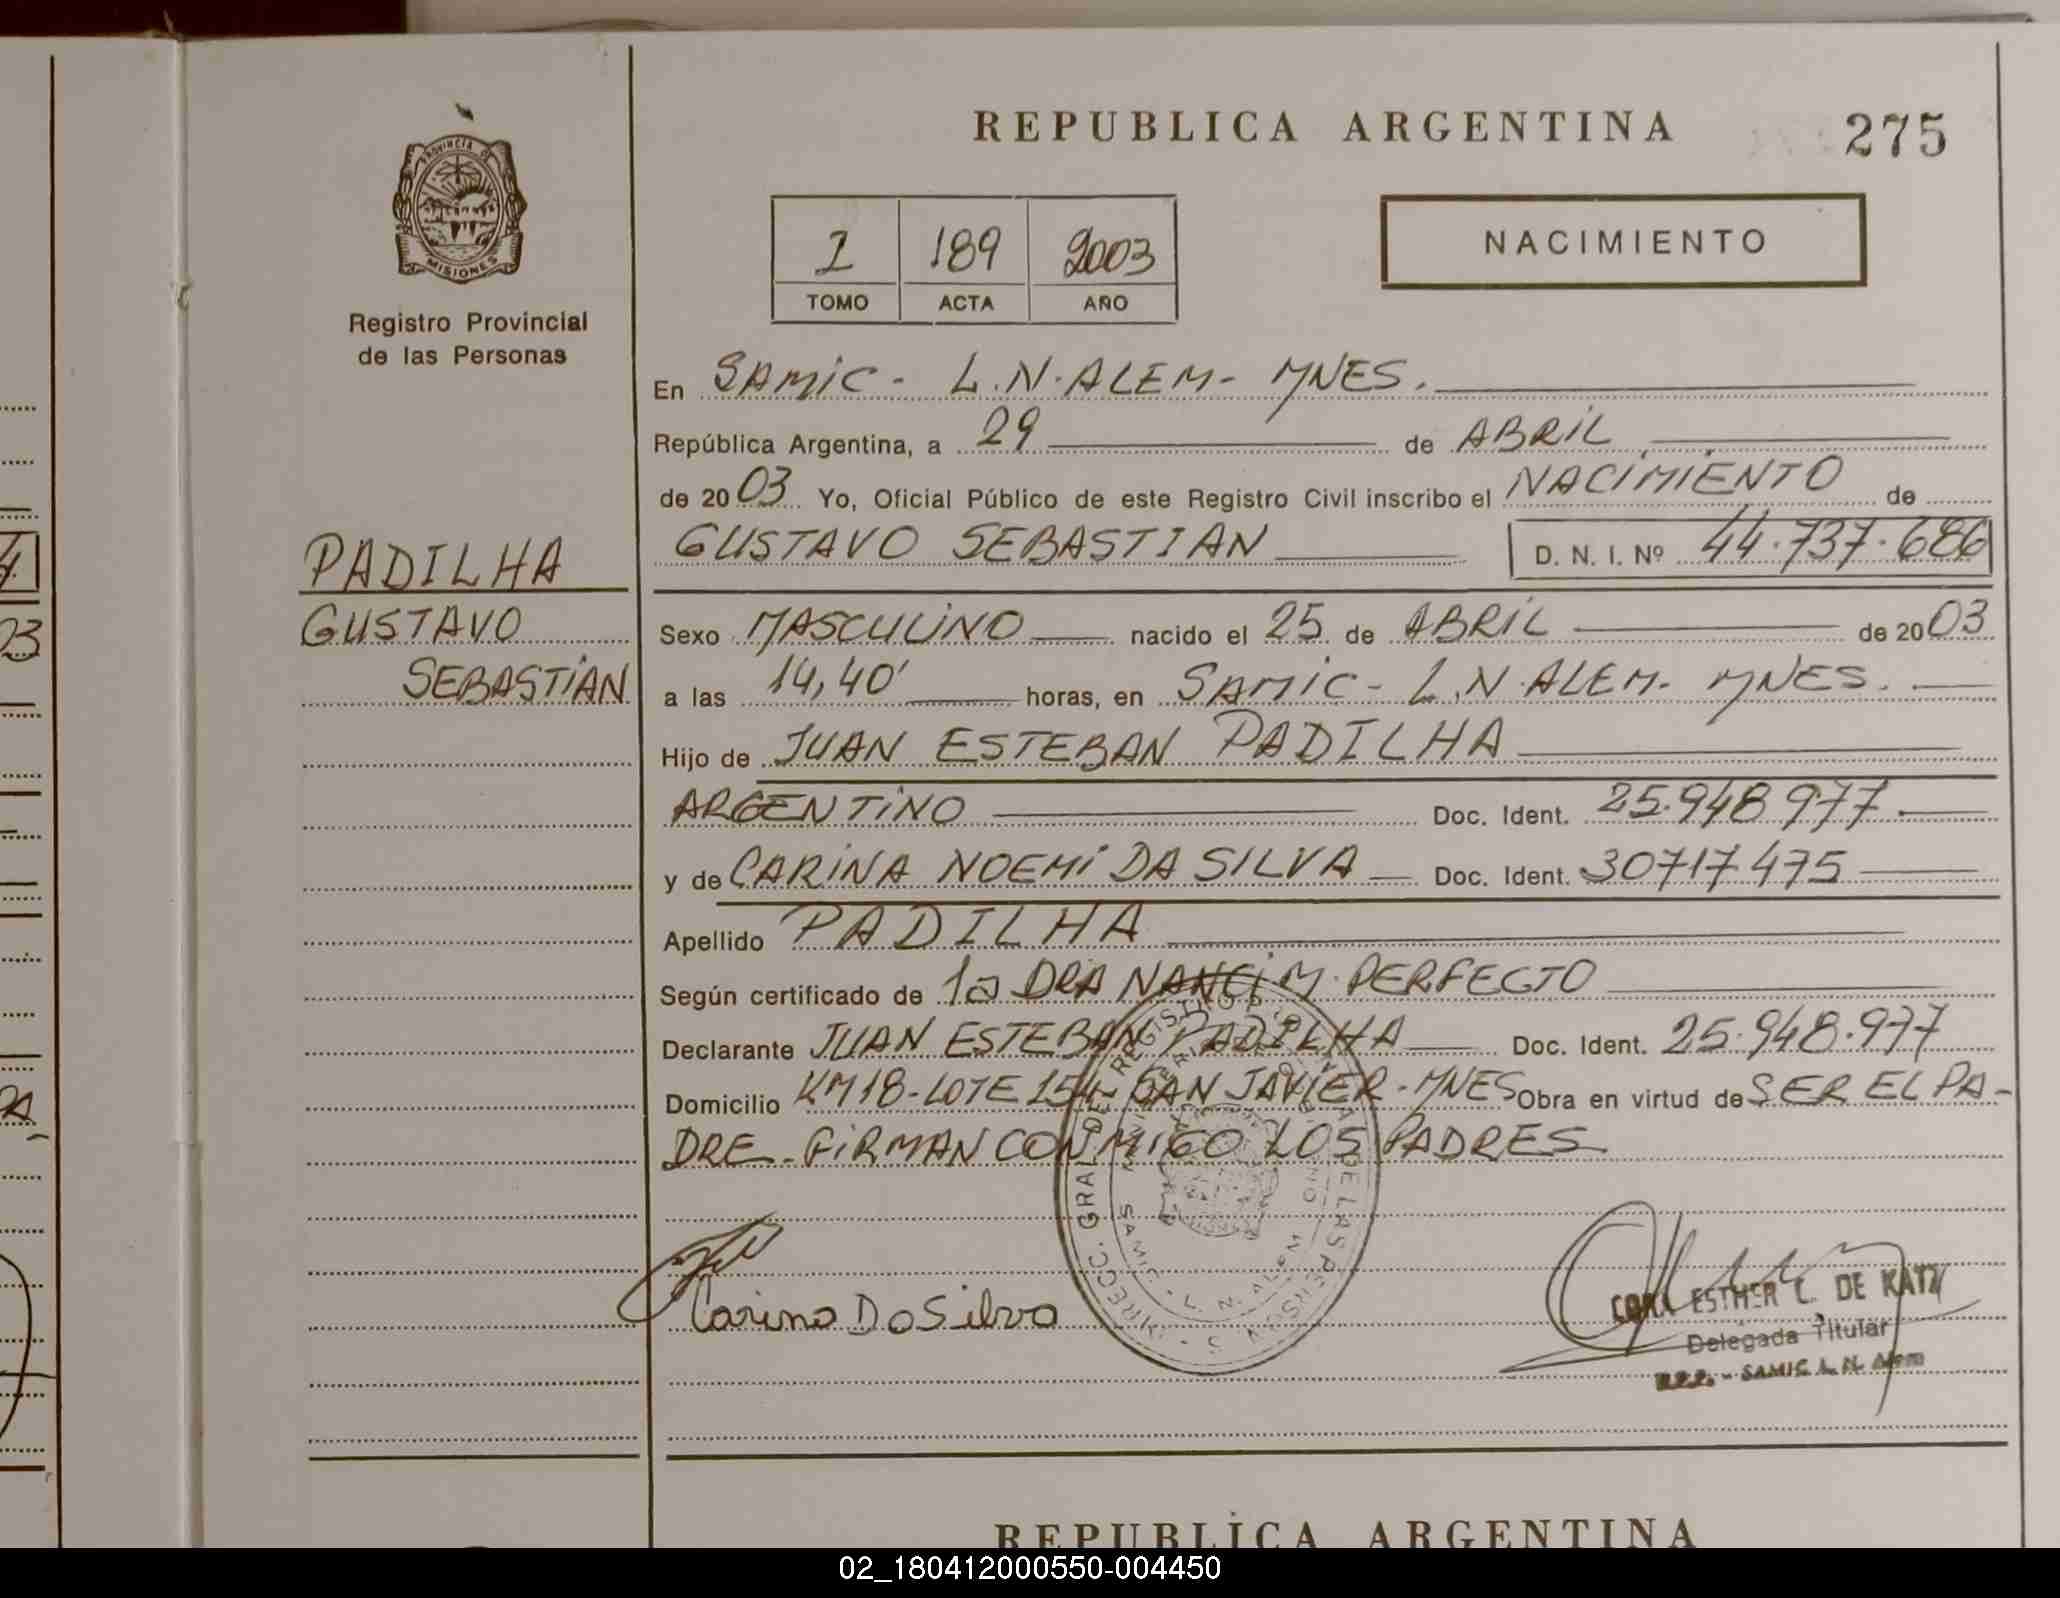 REPUBLICA ARGENTINA 275
PROVINCIA DE
MISIONES
Registro Provincial
de las Personas
I 189 2003
TOMO ACTA AÑO
NACIMIENTO
PADILHA
GUSTAVO
SEBASTIAN
En SAMIC - L.N. ALEM - MNES.
República Argentina, a 29 de ABRIL
de 2003 Yo, Oficial Público de este Registro Civil inscribo el NACIMIENTO de
GUSTAVO SEBASTIAN D. N. I. Nº 44.737.686
Sexo MASCULINO nacido el 25 de ABRIL de 2003
a las 14,40' horas, en SAMIC - L.N. ALEM - MNES.
Hijo de JUAN ESTEBAN PADILHA
ARGENTINO Doc. Ident. 25.948.977
y de CARINA NOEMI DA SILVA Doc. Ident. 30717475
Apellido PADILHA
Según certificado de la DRA NANCI M. PERFECTO
Declarante JUAN ESTEBAN PADILHA Doc. Ident. 25.948.977
Domicilio KM 18 - LOTE 154 - SAN JAVIER - MNES Obra en virtud de SER EL PA-
DRE - FIRMAN CONMIGO LOS PADRES
Carina Da Silva
DIRECC. GRAL DEL REGISTRO PROVINCIAL DE LAS PERSONAS
SAMIC - L. N. ALEM
CORA ESTHER L. DE KATZ
Delegada Titular
R.P.P. - SAMIC L. N. Alem
REPUBLICA ARGENTINA
02_180412000550-004450